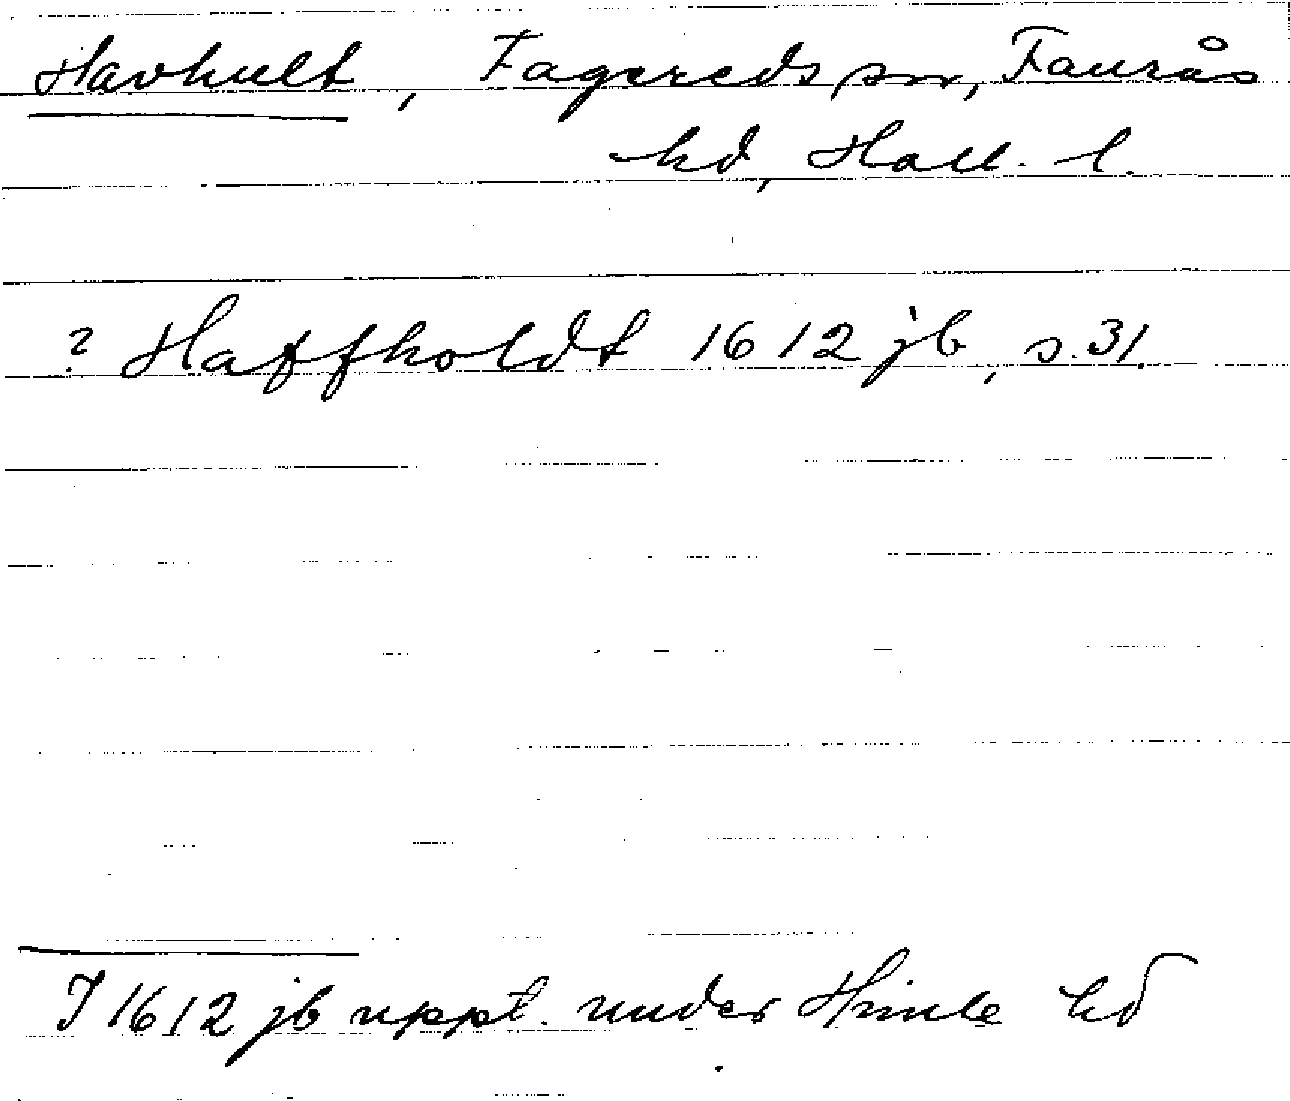 Havhult, Fagereds sn, Faurås
hd, Hall. l.
? Haffholdt 1612 jb, s. 31.
I 1612 jb uppt. under Himle hd